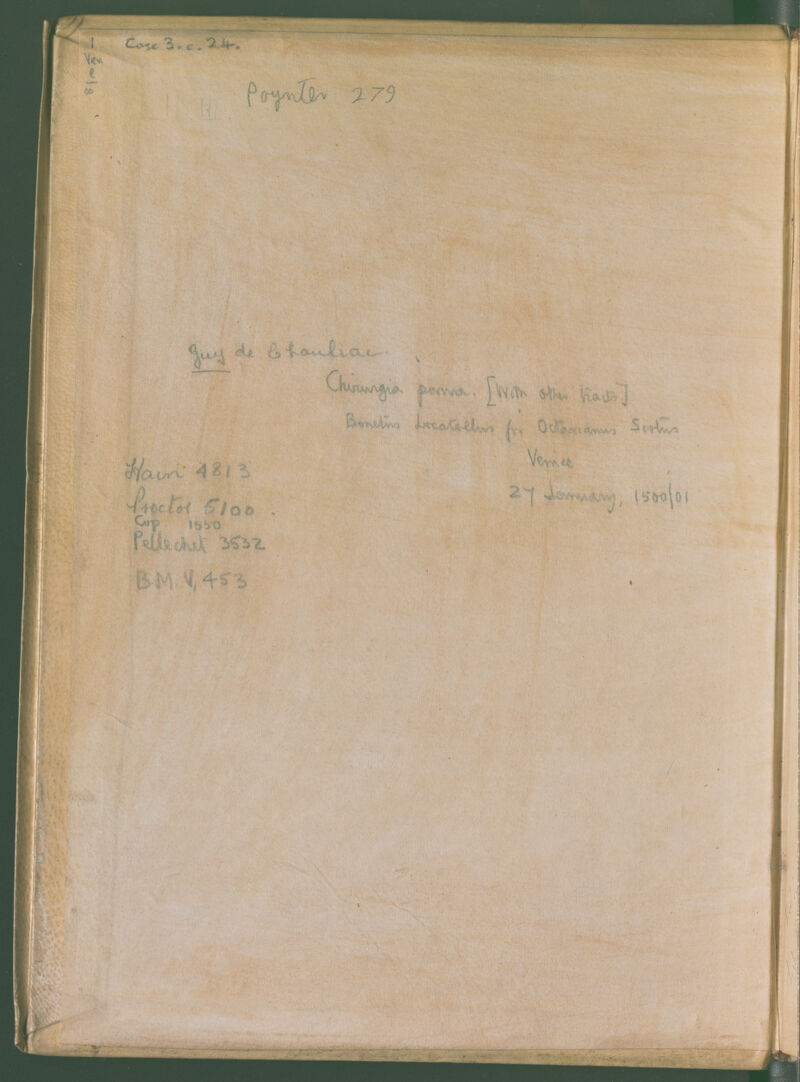 1
Ven
Case 3. c. 24.
Poynter 279
Guy de Chauliac.
Chirurgia parva. [With other tracts]
Bonetus Locatellus for Octavianus Scotus
Venice
27 January, 1500/01
Hain 4813
Proctor 5100.
Cop 1550
Pellechet 3532
B.M. V, 453